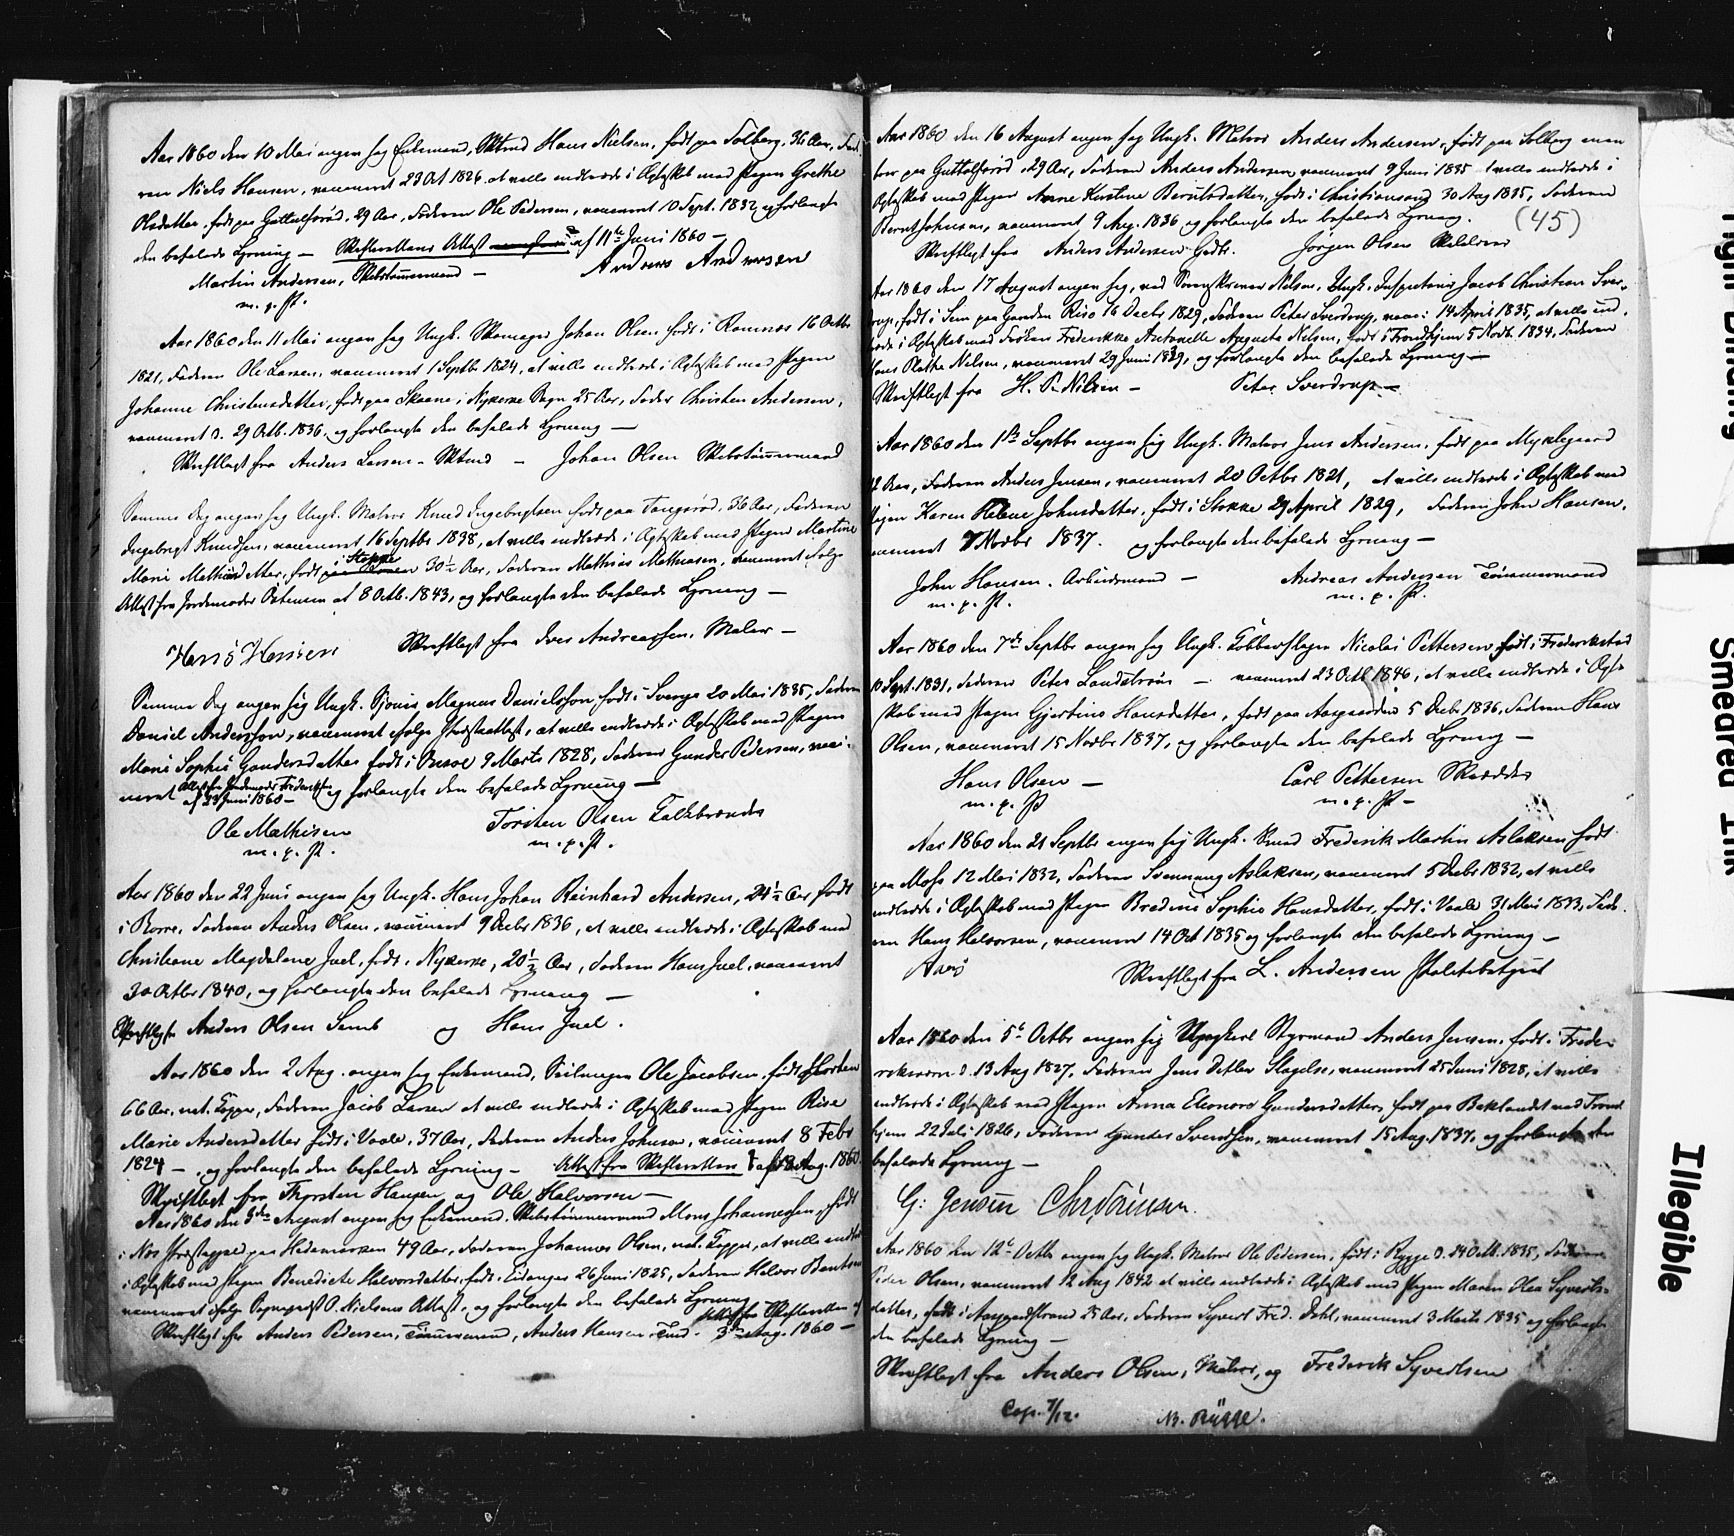 Aar 1860 den 10 Mai angav sig Enkemand, Hans Nielsen, født paa Solberg, 36 Aar, Fade-
ren Niels Hansen, vaccineret 23 Oct 1826 at ville indtræde i Ægteskab med Pigen Grethe
Olsdatter, født paa 29 Aar, Faderen Ole Pedersen, vaccineret 10 Sept. 1832 og forlangte
den befalede Lysning — Skifterettens Attest af 11te Juni 1860 —
Martin Andersen, Skibstømmermand — Andreas Andersen
m. p. P.
Aar 1860 den 11 Mai angav sig Ungk. Skomager Johan Olsen født i Ramnæs 16 Octbr
1821, Faderen Ole Larsen, vaccineret 1 Septbr 1824, at ville indtræde i Ægteskab med Pigen
Johanne Christensdatter, født paa Skaane i Nykirke Sogn 25 Aar, Fader Christen Andersen,
vaccineret d. 29 Octb. 1836, og forlangte den befalede Lysning —
Skriftligt fra Anders Larsen — Johan Olsen Skibstømmermand
Samme Dag angav sig Ungk. Matros Knud Ingebrigtsen født paa Tangerød, 36 Aar, Faderen
Ingebrigt Knudsen, vaccineret 16 Septbr 1838, at ville indtræde i Ægteskab med Pigen Martine
Marie Mathisdatter, født i Stokke 30½ Aar, Faderen Mathias Mathiasen, vaccineret ifølge
Attest fra Jordemoder af 8 Octb. 1843, og forlangte den befalede Lysning —
Hans Hansen Skriftligt fra Iver Andreassen, Maler —
Samme Dag angav sig Ungk. Magnus Danielsson, født i Sverige 20 Mai 1835, Faderen
Daniel Andersson, vaccineret ifølge Præsteattest, at ville indtræde i Ægteskab med Pigen
Marie Sophie Gundersdatter født i 9 Marts 1828, Faderen Gunder Pedersen, vacci-
neret Attest fra Jordemoder af 23 Juni 1860 — og forlangte den befalede Lysning —
Ole Mathisen Torsten Olsen Kalkbrænder
m. p. P. m. p. P.
Aar 1860 den 22 Juni angav sig Ungk. Hans Johan Reinhard Andersen, 24½ Aar født
i Borre, Faderen Anders Olsen, vaccineret 9 Decbr 1836, at ville indtræde i Ægteskab med
Christiane Magdalene Juel, født i Nykirke, 20½ Aar, Faderen Hans Juel, vaccineret
30 Octbr 1840, og forlangte den befalede Lysning —
Skriftligt fra Anders Olsen Semb og Hans Juel.
Aar 1860 den 2 Aug. angav sig Enkemand, Ole Jacobsen, født i Horten
66 Aar, nat. Kopper, Faderen Jacob Larsen at ville indtræde i Ægteskab med Pigen
Marie Andersdatter født i Vaale, 37 Aar, Faderen Anders Johnsen, vaccineret 8 Febr
1824 — og forlangte den befalede Lysning — Attest fra Skifteretten af Aug. 1860
Skriftligt fra Thorsten Hansen og Ole Halvorsen —
Aar 1860 den 3die August angav sig Enkemand, Skibstømmermand Mons Johannessen, født
i Næs Præstegjeld paa Hedemarken 49 Aar, Faderen Johannes Olsen, nat. Kopper, at ville indtræde
i Ægteskab med Pigen Benedicte Halvorsdatter, født i Eidanger 26 Juni 1825, Faderen Halvor Bentsen
vaccineret ifølge Sognepræst Nielsens Attest, og forlangte den befalede Lysning
Attest fra Skifteretten af
Skriftligt fra Anders Pedersen, Tømmermand, Anders Hansen, 3die Aug. 1860 —
Aar 1860 den 16 August angav sig Ungk. Matros Anders Andersen, født paa Solberg men
boer paa 29 Aar, Faderen Anders Andersen vaccineret 9 Juni 1835 at ville indtræde i
Ægteskab med Pigen Anne Kirstine Berntsdatter, født i Christianssand 30 Aug 1835, Faderen
Bernt Johnsen, vaccineret 9 Aug. 1836 og forlangte den befalede Lysning. (45)
Skriftligt fra Anders Andersen Jørgen Olsen
Aar 1860 den 17 August angav sig, ved Nelsen, Ungk. Inspecteur Jacob Christian Sver-
rup, født i Sem paa Gaarden 16 Decbr 1829, Faderen Peter Sverdrup, vacc. 14 April 1835, at ville ind-
træde i Ægteskab med Frøken Frederikke Antonette Augusta Nelsen, født i Trondhjem 5 Novb. 1834, Faderen
Hans Nelsen, vaccineret 29 Juni og forlangte den befalede Lysning —
Skriftligt fra H. P. Nilsen — Peter Sverdrup —
Aar 1860 den 1ste Septbr angav sig Ungk. Matros Jens Andersen, født paa Myklegaard
Aar, Faderen Anders Jensen, vaccineret 20 Octbr 1821, at ville indtræde i Ægteskab med
Pigen Karen Helene Johnsdatter, født i Stokke 29 April 1829, Faderen John Hansen,
vaccineret 7 Novbr 1837. og forlangte den befalede Lysning —
John Hansen, Arbeidsmand — Andreas Andersen Tømmermand
m. p. P. m. p. P.
Aar 1860 den 7de Septbr angav sig Ungk. Kobberslager Nicolai Pettersen født i Frederikstad
10 Sept. 1831, Faderen Peter Landstrøm — vaccineret 23 Octb 1846, at ville indtræde i Ægte-
skab med Pigen Gjertine Hansdatter, født paa Aasgaarden 5 Decbr 1836, Faderen Hans
Olsen, vaccineret 15 Novbr 1837, og forlangte den befalede Lysning —
Hans Olsen — Carl Pettersen Skrædder
m. p. P m. p. P —
Aar 1860 den 21 Septbr angav sig Ungk. Smed Frederik Martin Aslaksen født
paa Moss 12 Mai 1832, Faderen Svennung Aslaksen, vaccineret 5 Decbr 1832, at ville
indtræde i Ægteskab med Pigen Sophie Hansdatter, født i Vaale 31 Mai 1833, Fade-
ren Hans Halvorsen, vaccineret 14 Oct 1835 og forlangte den befalede Lysning —
Skriftligt fra L. Andersen Politibetjent
Aar 1860 den 5te Octbr angav sig Ungkarl Styrmand Anders Jensen, født i Frede-
riksværn d. 13 Aug 1827, Faderen Jens Detlev Slagelse, vaccineret 25 Juni 1828, at ville
indtræde i Ægteskab med Pigen Anna Eleonore Gundersdatter, født paa Baklandet ved Trond-
hjem 22 Juli 1826, Faderen Gunder Svendsen, vaccineret 15 Aug. 1837, og forlangte den
befalede Lysning —
G: Jensen Chr Sörensen.
Aar 1860 den 12te Octbr angav sig Ungk. Matros Ole Pedersen, født i Rygge d. 14 Octb. 1835, Faderen
Peder Olsen, vaccineret 12 Aug 1842 at ville indtræde i Ægteskab med Pigen Maren Olea Syverts-
datter, født i Aasgaardstrand 25 Aar, Faderen Syvert Fred. Dahl, vaccineret 3 Marts 1835 og forlangte
den befalede Lysning —
Skriftligt fra Anders Olsen, Matros, og Frederik Syvertsen
Cop. 7/12. N. Rygge.
Tight Binding
Smeared Ink
Illegible